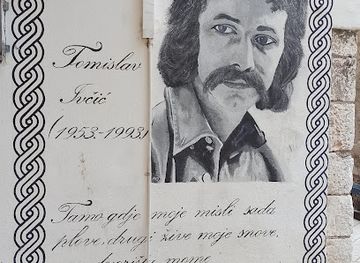 Tomislav
Ivčić
(1953.-1993)
Tamo gdje moje misli sada
plove, drugi žive moje snove,